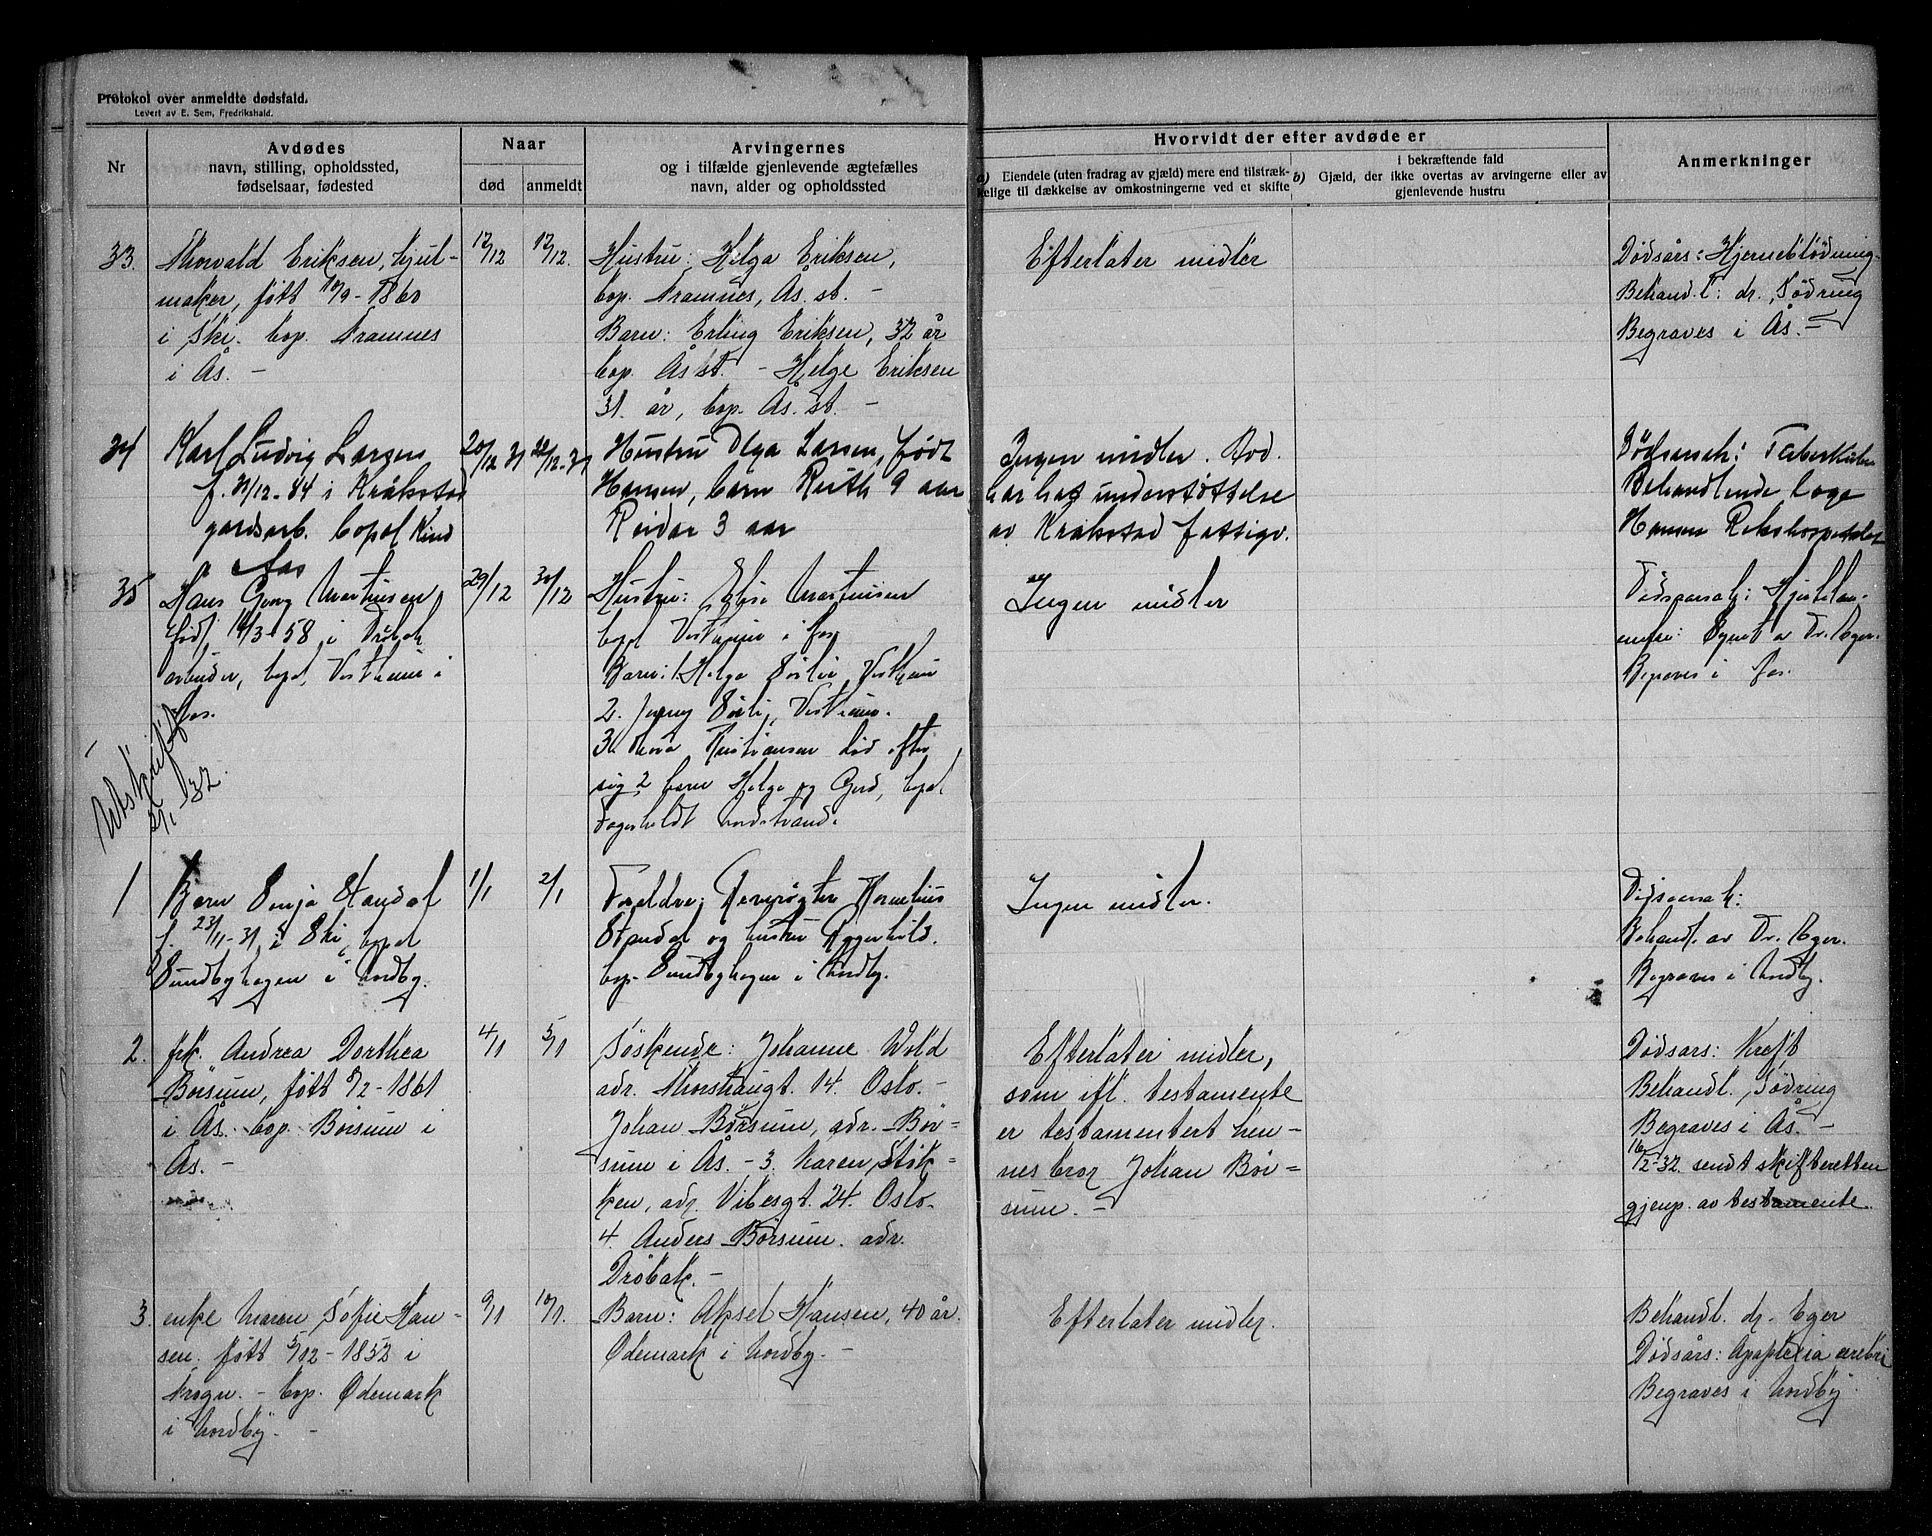 Protokol over anmeldte dødsfald.
Levert av E. Sem, Fredrikshald.
Nr
Avdødes
navn, stilling, opholdssted,
fødselsaar, fødested
Naar
død
anmeldt
Arvingernes
og i tilfælde gjenlevende ægtefælles
navn, alder og opholdssted
Hvorvidt der efter avdøde er
a) Eiendele (uten fradrag av gjæld) mere end tilstræk-
kelige til dækkelse av omkostningerne ved et skifte
i bekræftende fald
b) Gjæld, der ikke overtas av arvingerne eller av
gjenlevende hustru
Anmerkninger
33.
Thorvald Eriksen, hjul-
maker, født 10/9 - 1860
i Ski. bop. Framnes
i Ås. -
12/12
12/12.
Hustru: Helga Eriksen,
bop. Framnes, Ås. st. -
Barn: Erling Eriksen, 32 år
bop. Ås st. - Helge Eriksen
31. år, bop. Ås. st. -
Efterlater midler
Dødsårs: Hjerneblødning
Behandl: dr. Södring
Begraves i Ås. -
34
Karl Ludvig Larsen
f. 31/12-44 i Kråkstad
gardsarb. bopæl
i Aas
20/12 31
22/12-31
Hustru Olga Larsen, født
Hansen, barn Ruth 9 aar
Reidar 3 aar
Ingen midler.
har hat understøttelse
av Kråkstad fattigv.
Dødsarsak: Tuberkulos
Behandlende læge
Hansen Rikshospitalet
35
Hans Georg Martinsen
født 14/3-58 i Drøbak
arbeider, bopel, Vestheim i
Aas.
29/12
30/12
Hustru: Elise Martinsen
bopel Vestheim i Aas
Barn: 1. Helga Vestheim
2. Jenny Vestheim.
3. Thora Kristiansen død efter
sig 2 barn Helge og Gerd, bopel
Nordstrand.
Ingen midler
Dødsaarsak: Hjertelam-
melse: Synet av Dr. Eger.
Begraves i Aas.
Utskrift
2/1 1932
1
Barn Sonja Standal
f. 23/11-31, i Ski, bopel
Sundbyhagen i Nordby.
1/1
2/1
Foreldre: Reverøgter Kornelius
Standal og hustru Ragnhild.
bop. Sundbyhagen i Nordby.
Ingen midler.
Dødsaarsak:
Behandl. av Dr. Eger.
Begraves i Nordby.
2.
frk. Andrea Dorthea
Børsum, født 8/2 - 1861
i Ås. bop. Børsum i
Ås. -
4/1
5/1
Søskende: Johanne Wold
adr. Thorshaugt. 14. Oslo. -
Johan Børsum, adr. Bør-
sum i Ås. - 3. Karen Støk-
ken, adr. Vibesgt. 24. Oslo.
4. Anders Børsum. adr.
Drøbak. -
Efterlater midler,
som ifl. testamente
er testamentert hen-
nes bror Johan Bør-
sum. -
Dødsårs: Kreft
Behandl. Södring
Begraves i Ås. -
16/2-32. sendt skifteretten
gjenp. av testamente.
3.
enke Maren Sofie Han-
sen. født 5/12 - 1852 i
Frogn. - bop. Ødemark
i Nordby. -
9/1
10/1.
Barn: Aksel Hansen, 40 år.
Ødemark i Nordby. -
Efterlater midler.
Behandl. dr. Eger
Dødsårs: Apoplexia cerebri
Begraves i Nordby.